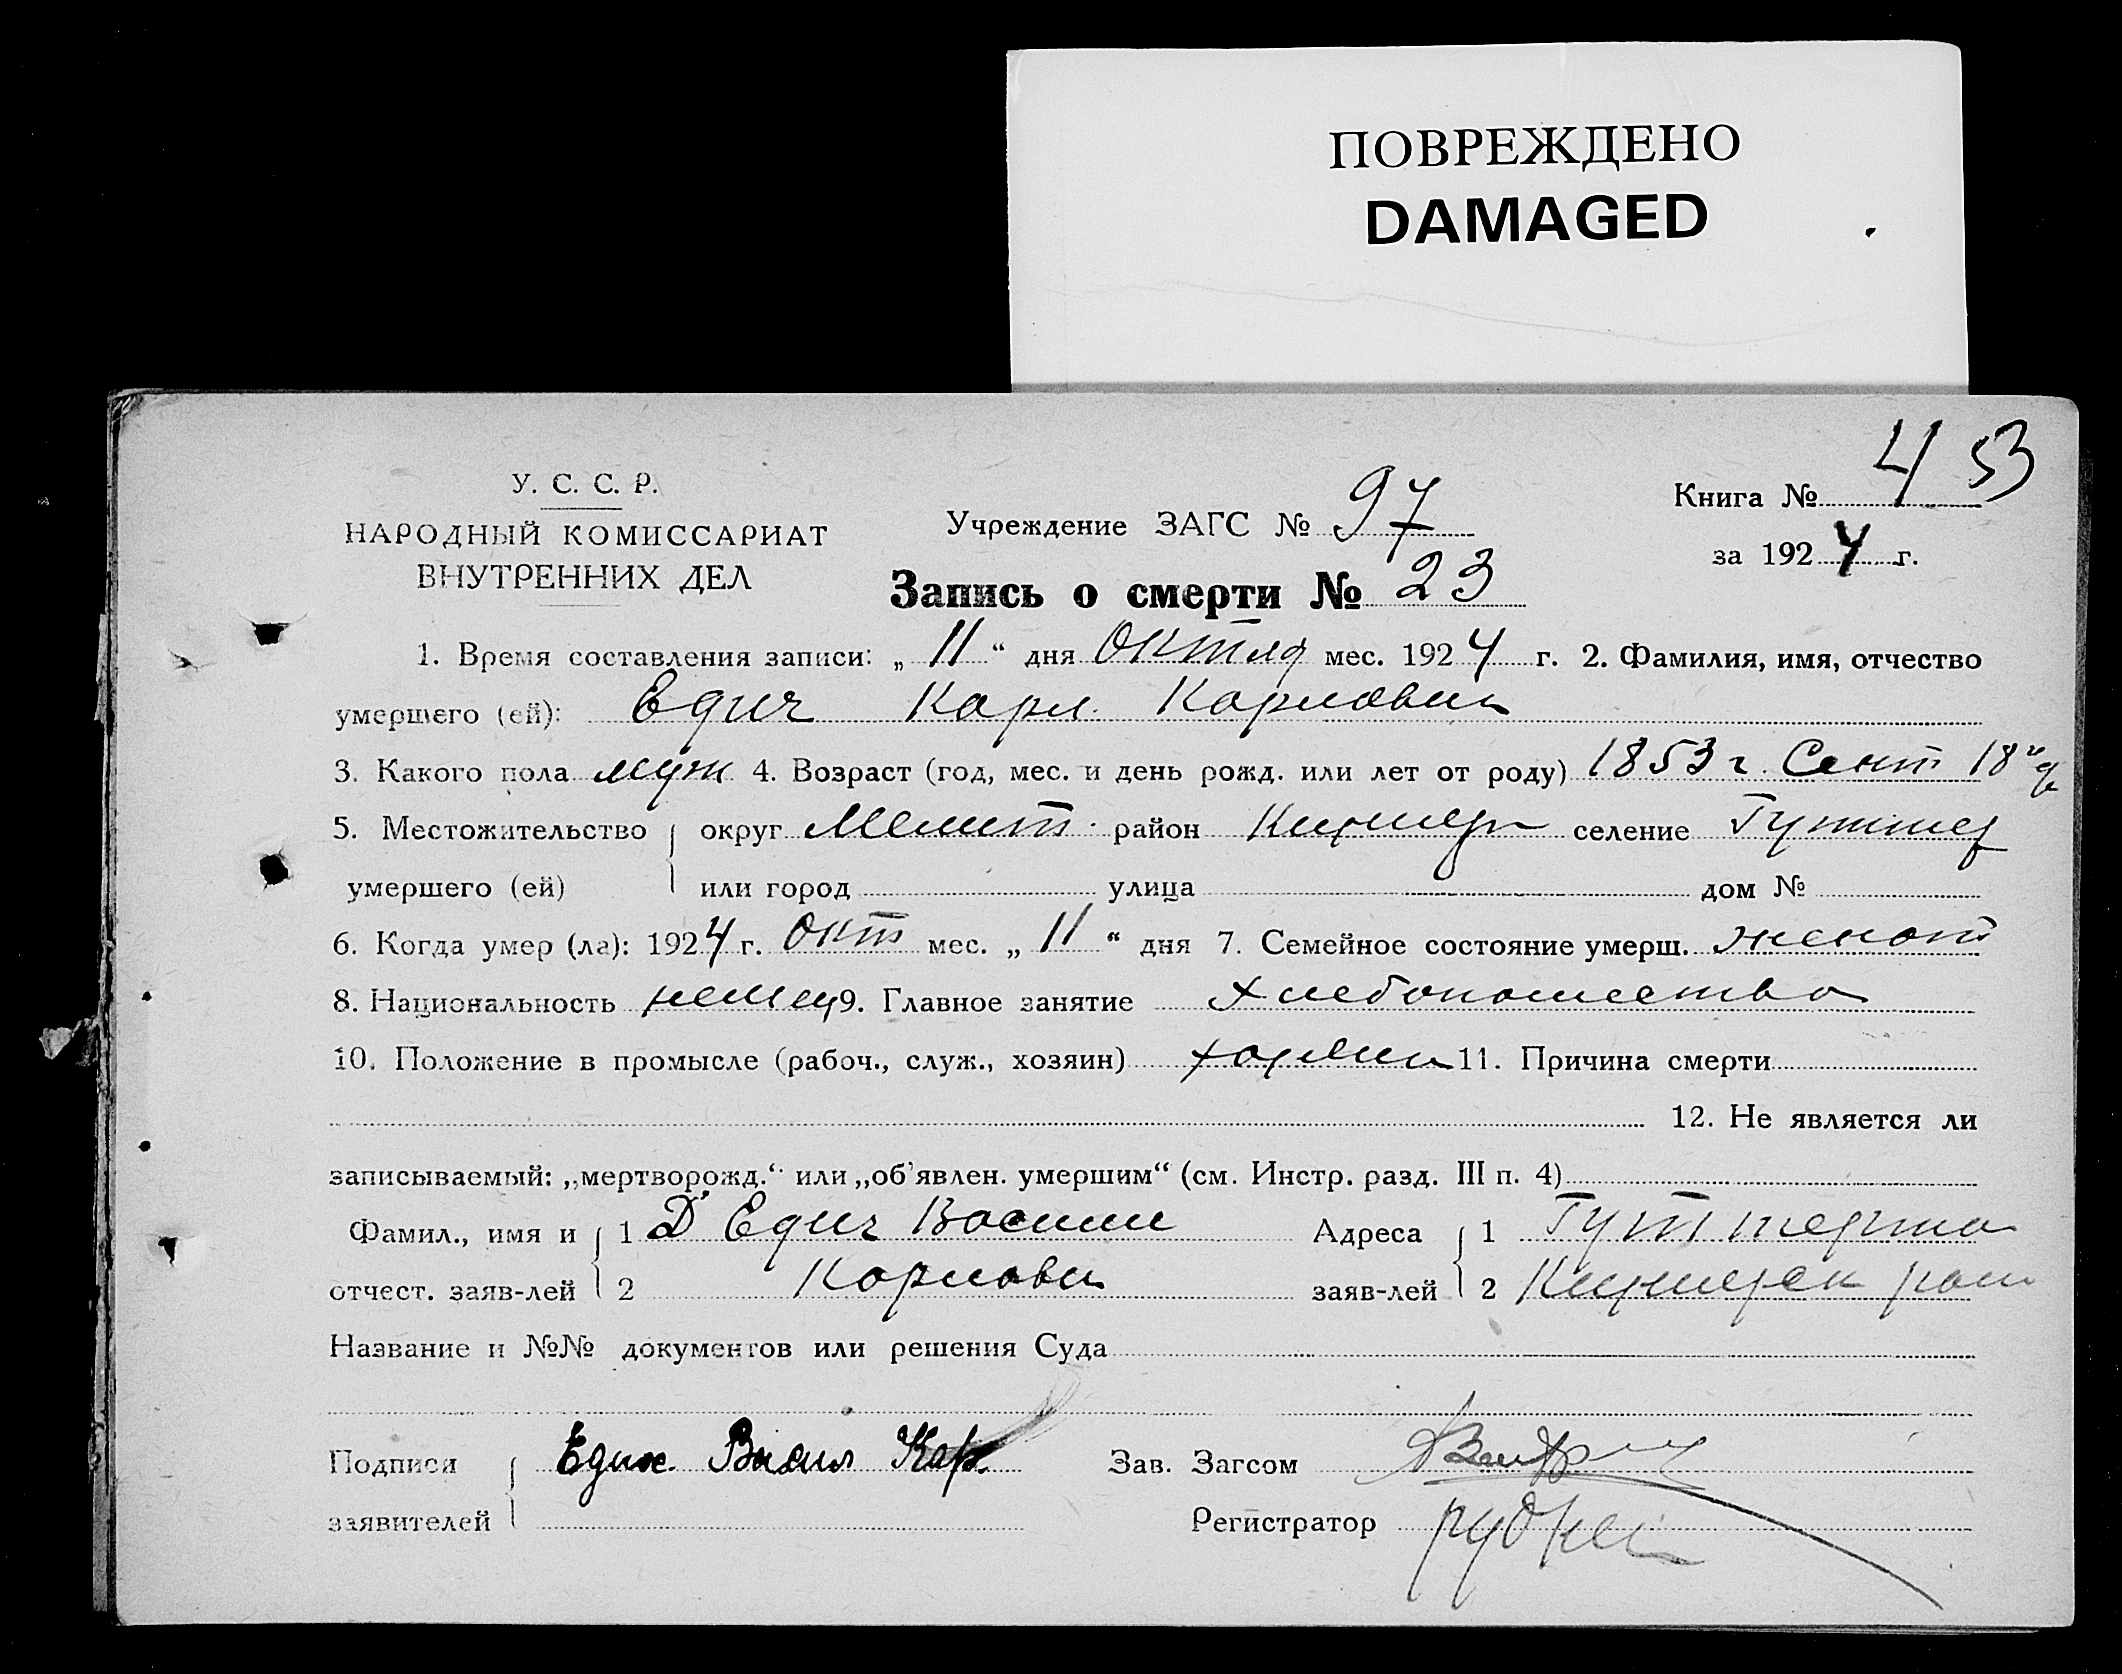 ПОВРЕЖДЕНО
DAMAGED
У. С. С. Р.
НАРОДНЫЙ КОМИССАРИАТ
ВНУТРЕННИХ ДЕЛ
Учреждение ЗАГС № 97
Книга № 4 53
за 1924 г.
Запись о смерти № 23
1. Время составления записи: „ 11 “ дня Октяб мес. 1924 г. 2. Фамилия, имя, отчество
умершего (ей): Едич Карл Карлович
3. Какого пола муж 4. Возраст (год, мес. и день рожд. или лет от роду) 1853 г. Сент 18
5. Местожительство округ Мелит. район селение
умершего (ей) или город улица дом №
6. Когда умер (ла): 1924 г. Окт мес. „ 11 “ дня 7. Семейное состояние умерш. женат
8. Национальность немец 9. Главное занятие хлебопашество
10. Положение в промысле (рабоч., служ., хозяин) хозяин 11. Причина смерти
12. Не является ли
записываемый: „мертворожд.“ или „об'явлен. умершим“ (см. Инстр. разд. III п. 4)
Фамил., имя и 1 Едич Васили Адреса 1
отчест. заяв-лей 2 Карлови заяв-лей 2
Название и №№ документов или решения Суда
Подписи Васил Кар. Зав. Загсом
заявителей Регистратор